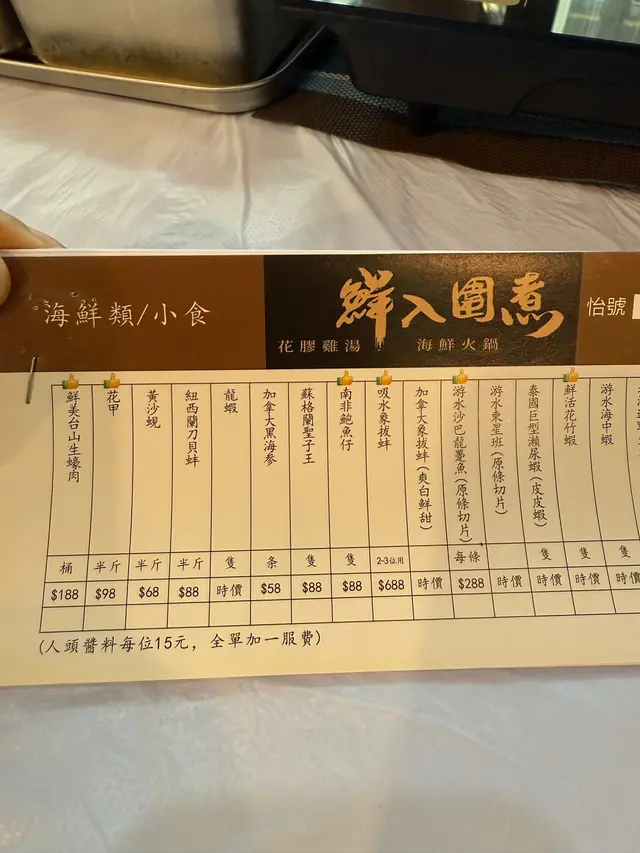 海鮮類/小食
鮮入圍煮
花膠雞湯 海鮮火鍋
怡號
鮮美台山生蠔肉 桶 $188
花甲 半斤 $98
黃沙蜆 半斤 $68
紐西蘭刀貝蚌 半斤 $88
龍蝦 隻 時價
加拿大黑海参 条 $58
蘇格蘭聖子王 隻 $88
南非鮑魚仔 隻 $88
吸水象拔蚌 2-3位用 $688
加拿大象拔蚌(爽白鮮甜) 時價
游水沙巴龍躉魚(原條切片) 每條 $288
游水東星班(原條切片) 時價
泰國巨型瀨尿蝦(皮皮蝦) 隻 時價
鮮活花竹蝦 隻 時價
游水海中蝦 隻 時價
(人頭醬料每位15元，全單加一服費)